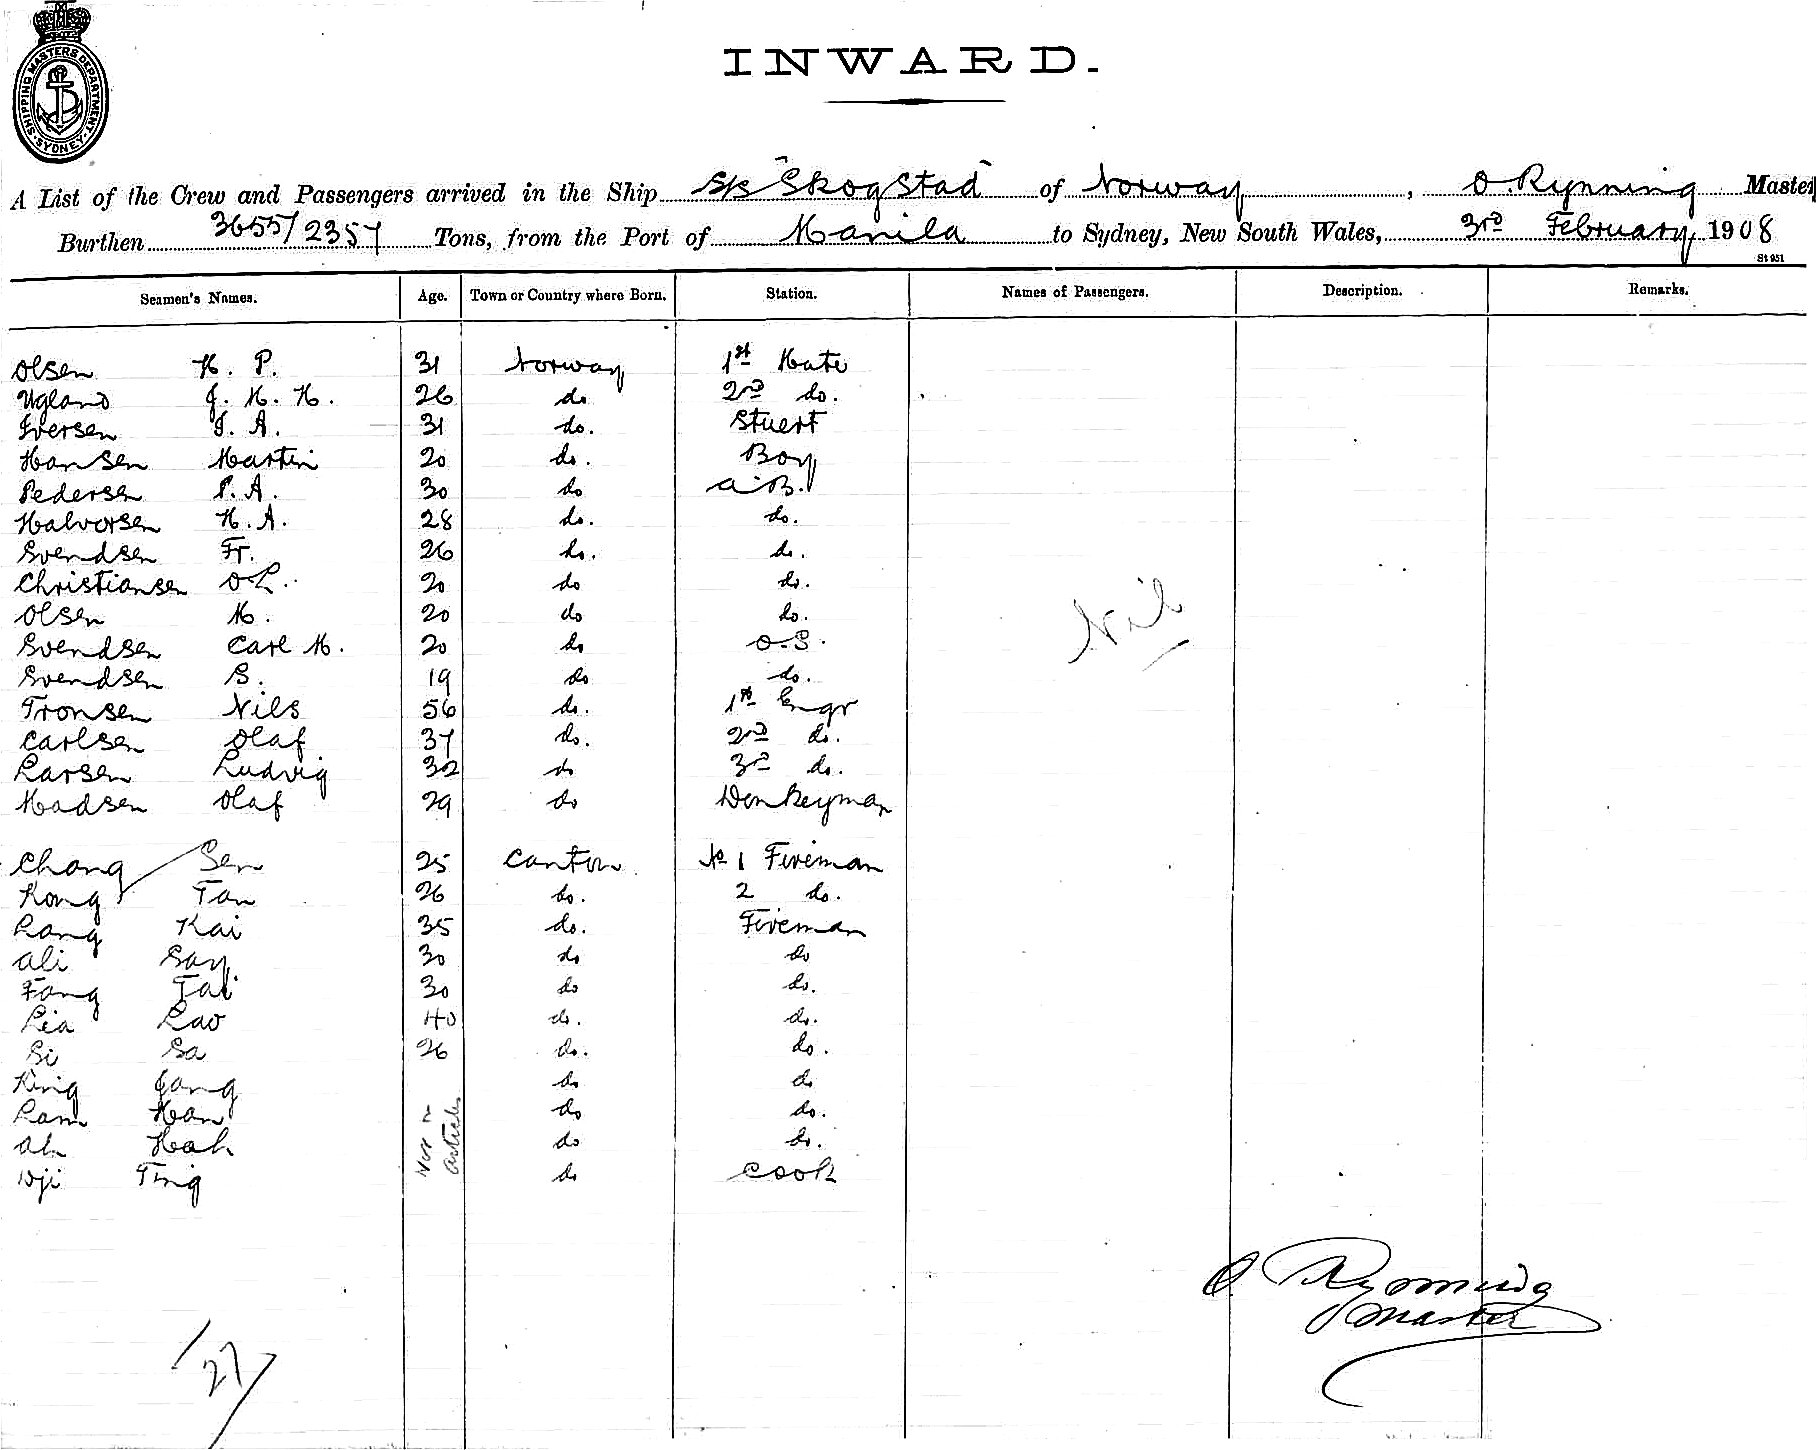 SHIPPING MASTERS DEPARTMENT
SYDNEY
INWARD.
A List of the Crew and Passengers arrived in the Ship S/S "Skogstad" of Norway, O. Rynning Master
Burthen 3655/2357 Tons, from the Port of Manila to Sydney, New South Wales, 3rd February, 1908
St 951
Seamen's Names. Age. Town or Country where Born. Station. Names of Passengers. Description. Remarks.
Olsen H. P. 31 Norway 1st Mate
Ugland J. M. H. 26 do 2nd do.
Iversen I. A. 31 do. Stuert
Hansen Martin 20 do. Boy
Pedersen P. A. 30 do A.B.
Halvorsen H. A. 28 do. do.
Svendsen Fr. 26 do. do.
Christiansen O L. 20 do do.
Olsen M. 20 do do.
Svendsen Carl M. 20 do O.S.
Svendsen S. 19 do do.
Tronsen Nils 56 do. 1st Engr
Carlsen Olaf 37 do. 2nd do.
Larsen Ludvig 32 do 3rd do.
Madsen Olaf 29 do Donkeyman
Nil
Chong Sen 25 Canton No 1 Fireman
Kong Tan 26 do. 2 do.
Lang Kai 35 do. Fireman
Ali Say 30 do do
Fong Tai 30 do do.
Lia Lao 40 do. do.
Si Sa 26 do. do.
King Jang do do
Lam Han do do.
Ah Hah do do.
Dji Ting do Cook
Not on articles
O. Rynning
Master
27